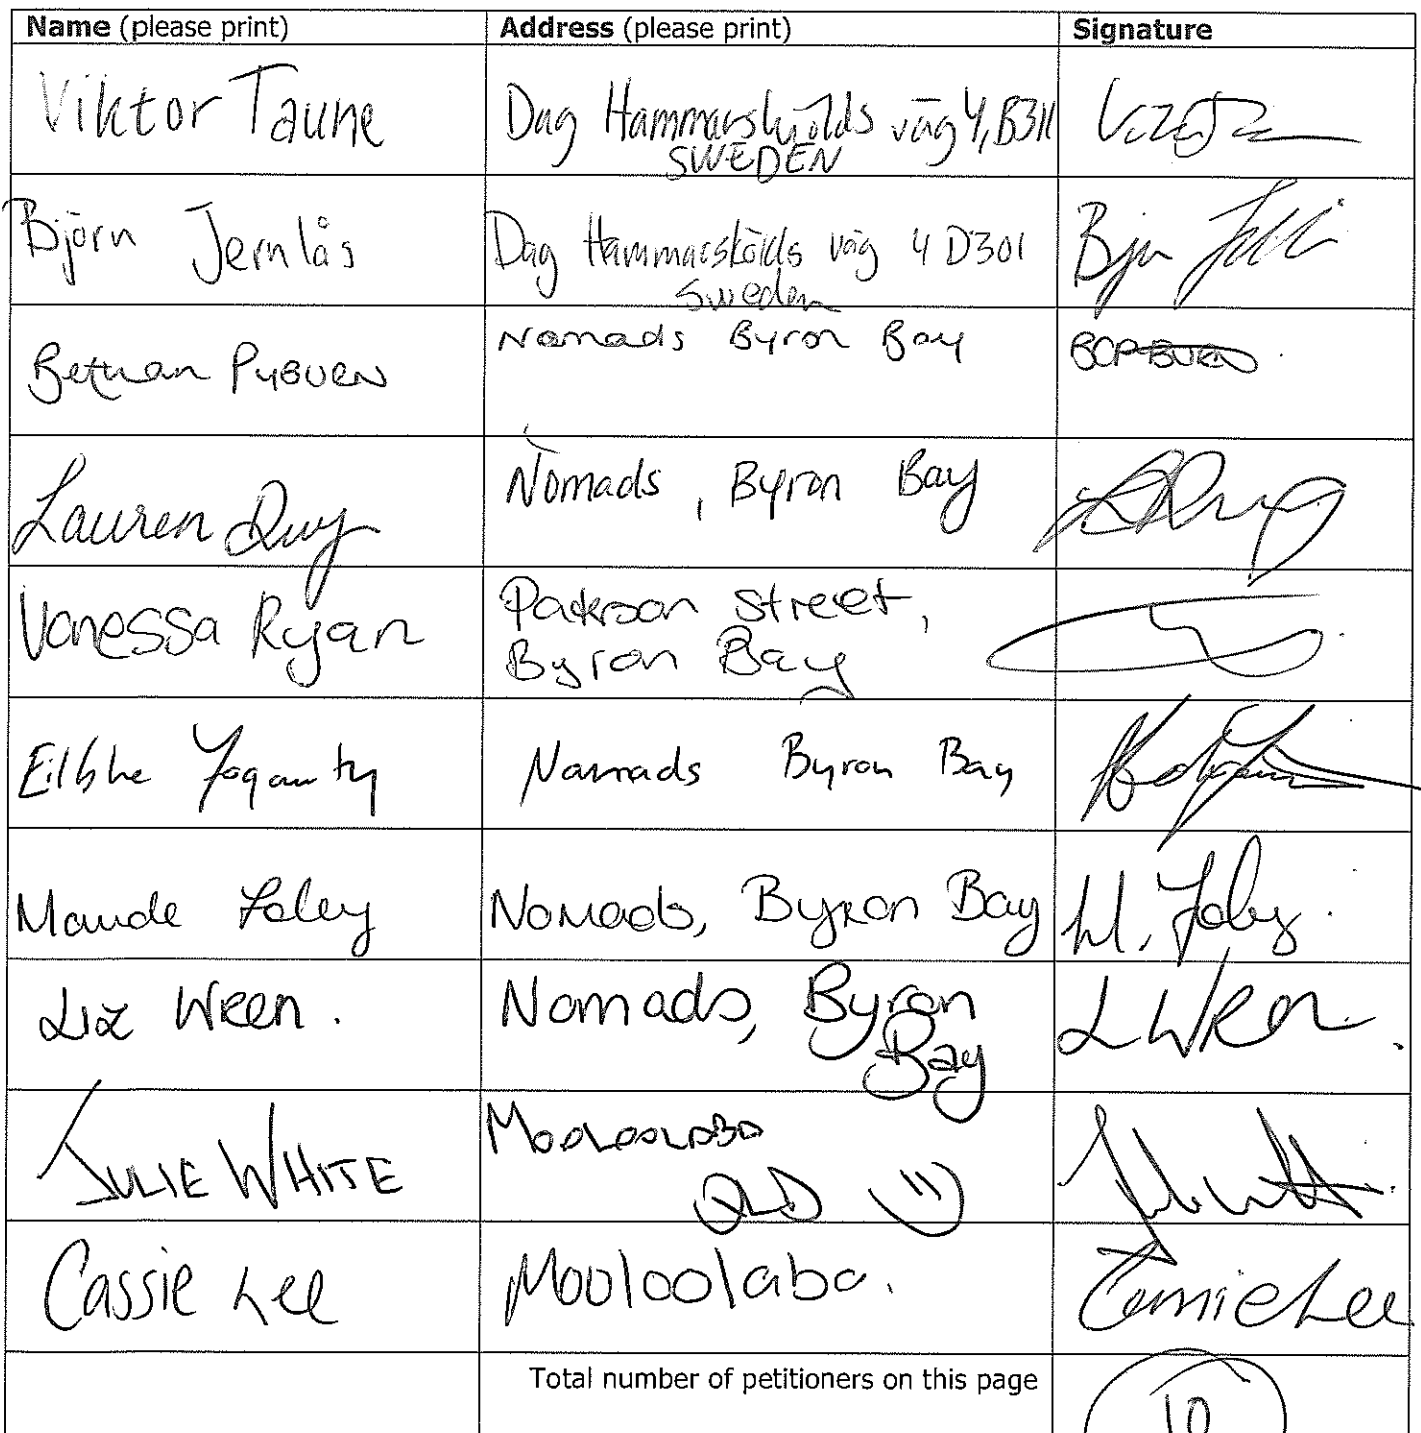 Name (please print) Address (please print) Signature
Viktor Taune Dag Hammarskjölds väg 4, B311
SWEDEN
Björn Jernlås Dag Hammarskölds väg 4 D301 Bjn
Sweden
Bethan PYBURN Nomads Byron Bay
Lauren Nomads, Byron Bay
Vanessa Ryan Paterson Street,
Byron Bay
Nomads Byron Bay
Maude Foley Nomads, Byron Bay M. Foley.
Liz Wren. Nomads, Byron L WREN.
Bay
JULIE WHITE MOOLOOLABA
QLD =)
Cassie Lee Mooloolaba. Cassie Lee
Total number of petitioners on this page 10